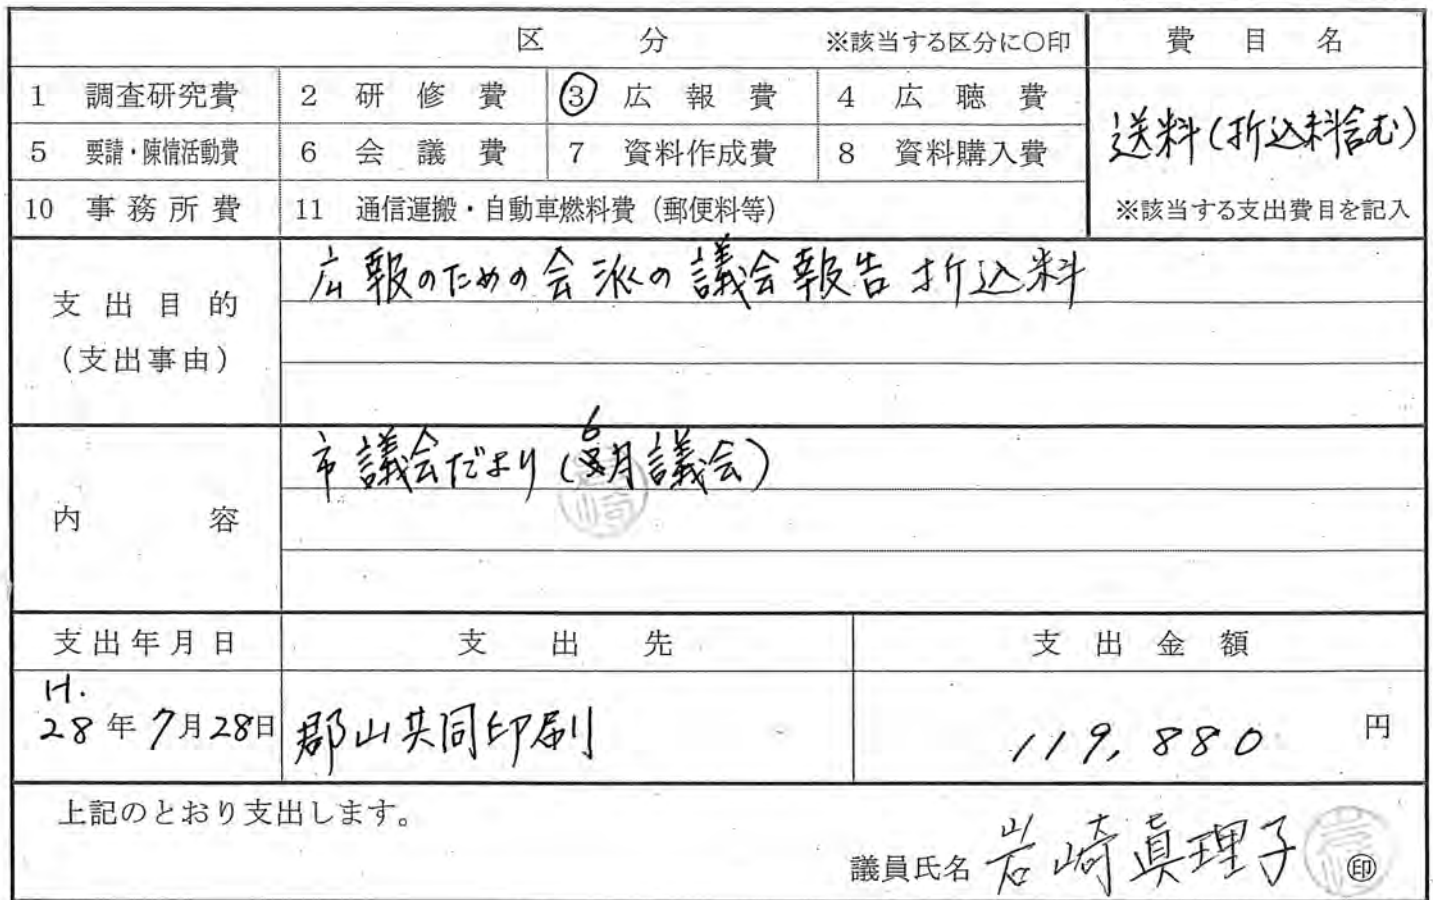 区 分 ※該当する区分に○印 費目名
1 調査研究費 2 研修費 ③ 広報費 4 広聴費
送料(折込料含む)
5 要請・陳情活動費 6 会議費 7 資料作成費 8 資料購入費
10 事務所費 11 通信運搬・自動車燃料費(郵便料等) ※該当する支出費目を記入
広報のための会派の議会報告折込料
支出目的
(支出事由)
市議会だより(6月議会)
内容
支出年月日 支出先 支出金額
H.
28年7月28日 郡山共同印刷 119,880 円
上記のとおり支出します。
議員氏名 岩崎真理子 ㊞